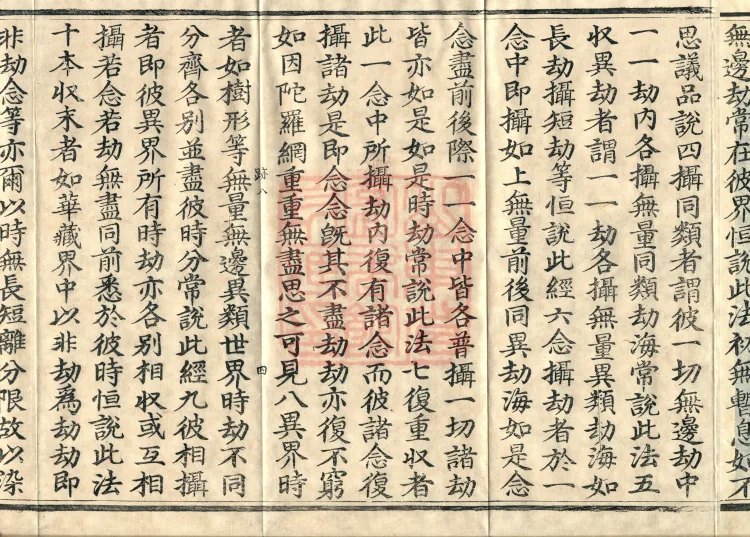 無邊劫常在彼界恒說此法初無暫息如不
思議品說四攝同類者謂彼一切無邊劫中
一一劫内各攝無量同類劫海常說此法五
収異劫者謂一一劫各攝無量異類劫海如
長劫攝短劫等恒說此經六念攝劫者於一
念中即攝如上無量前後同異劫海如是念
念盡前後際一一念中皆各普攝一切諸劫
皆亦如是如是時劫常說此法七復重収者
此一念中所攝劫内復有諸念而彼諸念復
攝諸劫是即念念旣其不盡劫劫亦復不窮
如因陀羅網重重無盡思之可見八異界時
跡八
四
者如樹形等無量無邊異類世界時劫不同
分齊各別並盡彼時分常說此經九彼相攝
者即彼異界所有時劫亦各別相収或互相
攝若念若劫無盡同前悉於彼時恒說此法
十本収末者如華藏界中以非劫爲劫劫即
非劫念等亦爾以時無長短離分限故以染